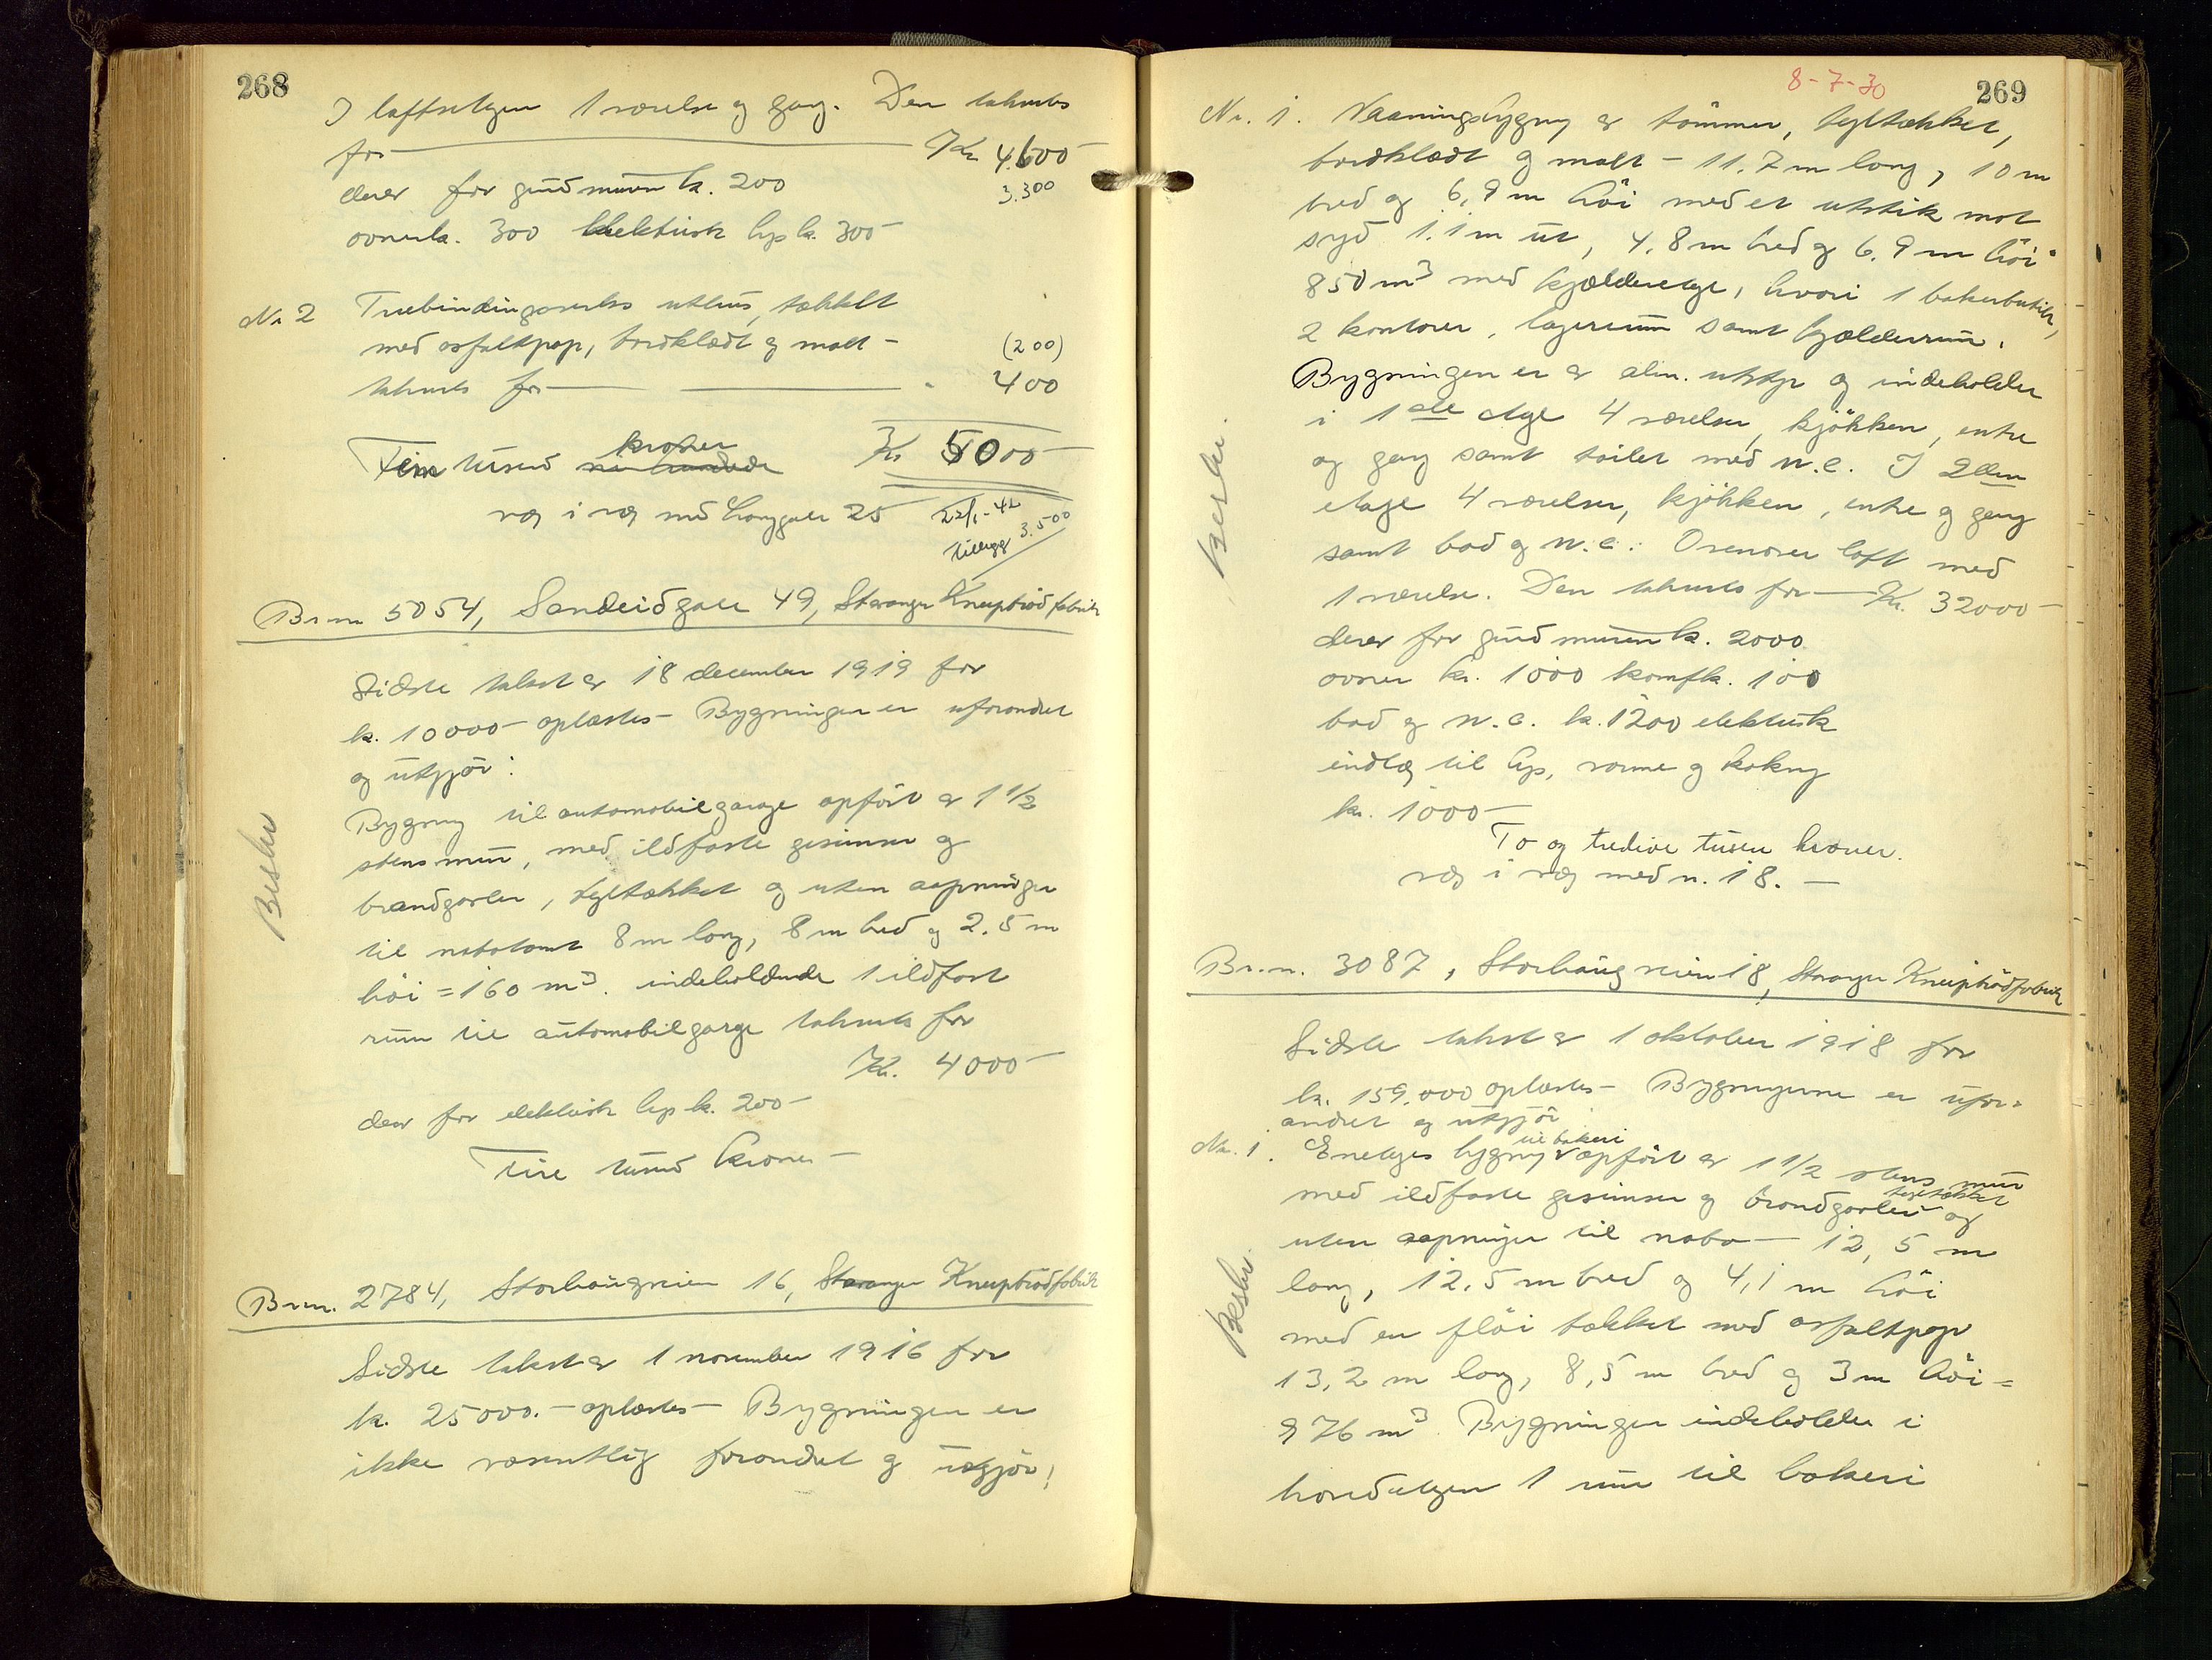 268
I loftsetgen 1 værelse og gang. Den takseres
for Kr 4.600-
derav for grundmuren kr. 200 3.300
ovner kr. 300 elektrisk lys kr. 300-
Nr 2 Truebindingsverks uthus, tækket
med asfaltpap, bordklædt og malt - (200)
takseres for " 400
kroner
Fem tusind Kr 5000-
væg i væg med Langgate 25 22/1-42
tillegg 3.500
Br.nr. 5054, Sandeidgate 49, Stavanger Kneipbrødfabrik
Sidste takst av 18 december 1919 for
kr. 10000- oplæstes- Bygningen er uforandret
og utgjør:
Bygning til automobilgarage opført av 1 1/2
stens mur, med ildfaste gesimser og
brandgavler, tegltækket og uten aapninger
til nabotomt 8 m lang, 8 m bred og 2.5 m
høi = 160 m3. indeholdende 1 ildfast
rum til automobilgarge takseres for
Kr. 4000-
derav for elektrisk lys kr. 200-
Fire tusind kroner-
Beskr
Br.nr. 2784, Storhaugveien 16, Stavanger Kneipbrødfabrik
Sidste takst av 1 november 1916 for
kr. 25000.- oplæstes- Bygningen er
ikke væsentlig forandret og utgjør;
8-7-30
269
Nr. 1. Vaaningsbygning av tømmer, tegltækket,
bordklædt og malt - 11.7 m lang, 10 m
bred og 6,9 m høi med et utstik mot
syd 1.1 m ut, 4,8 m bred og 6.9 m høi =
850 m3 med kjælderetage, hvori 1 bakerbutik,
2 kontorer, lagerrum samt kjælderrum.
Bygningen er av alm. utstyr og indeholder
i 1ste etage 4 værelser, kjøkken, entre
og gang samt toilet med w.c. I 2den
etage 4 værelser, kjøkken, entre og gang
samt bad og w.c. Ovenover loft med
1 værelse. Den takseres for - Kr. 32000-
derav for grundmuren kr. 2000
ovner kr. 1000 komf kr. 100
bad og w.c. kr. 1200 elektrisk
indlæg til lys, varme og kokning
kr. 1000-
To og tredive tusen kroner.
væg i væg med n. 18. -
Beskr.
Br.n. 3087, Storhaugveien 18, Stavanger Kneipbrødfabrik
Sidste takst av 1 oktober 1918 for
kr. 159.000 oplæstes- Bygningerne er ufor=
andret og utgjør
Nr. 1. Enetages bygning til bakeri opført av 1 1/2 stens mur
med ildfaste gesimser og brandgavler tegltækket og
uten aapninger til nabo - 12,5 m
lang, 12.5 m bred og 4,1 m høi
med en fløi tækket med asfaltpap
13,2 m lang, 8,5 m bred og 3 m høi =
976 m3. Bygningen indeholder i
hovedetagen 1 rum til bakeri
Beskr.